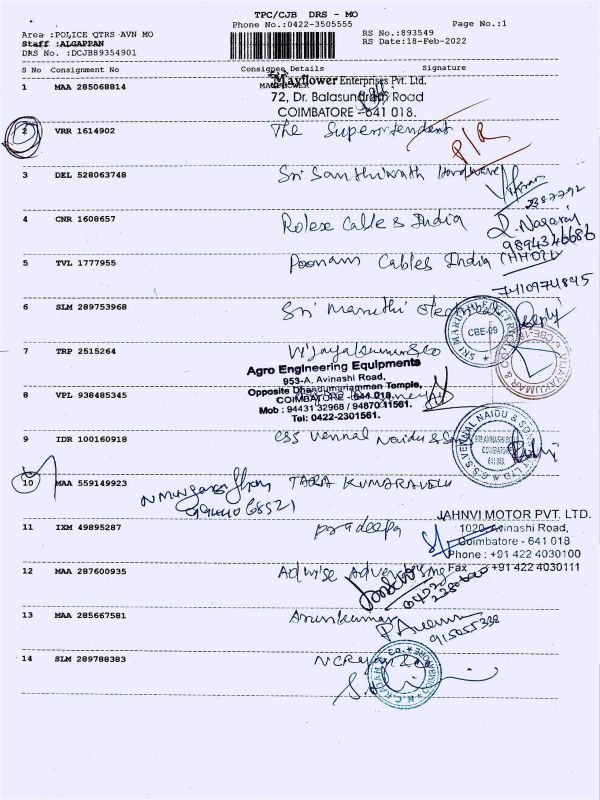 TPC/CJB DRS - MO
Phone No.:0422-3505555
Page No.:1
Area :POLICE QTRS AVN MO
RS No.:893549
Staff :ALGAPPAN
RS Date:18-Feb-2022
DRS No. :DCJB89354901
S No Consignment No Consignee Details Signature
1 MAA 285068814 MAYFLOWER
Mayflower Enterprises Pvt. Ltd.
72, Dr. Balasundram Road
COIMBATORE - 641 018.
2 VRR 1614902 The Superintendent
P/R
3 DEL 528063748 Sri Santhinath Hardware
4 CNR 1608657 Rolex Cables India
9894346686
5 TVL 1777955 Poonam Cables India
6 SLM 289753968 Sri Maruthi Electrical
CBE-09
7 TRP 2515264 Vijayakumar & co
Agro Engineering Equipments
953-A, Avinashi Road,
Opposite Dhandumariamman Temple,
COIMBATORE - 641 018.
Mob : 94431 32968 / 94870 11561.
Tel: 0422-2301561.
8 VPL 938485345
9 IDR 100160918 CSS Vennal Naidu & Son
G.S.S VENNAL NAIDU & SONS
10 MAA 559149923 TARA KUMARAVELU
11 IXM 49895287 Pradeepa
JAHNVI MOTOR PVT. LTD.
1020, Avinashi Road,
Coimbatore - 641 018
Phone : +91 422 4030100
Fax : +91 422 4030111
12 MAA 287600935 Adwise Advertising
13 MAA 285667581 Arunkumar
14 SLM 289788383 N C Rajan & Co